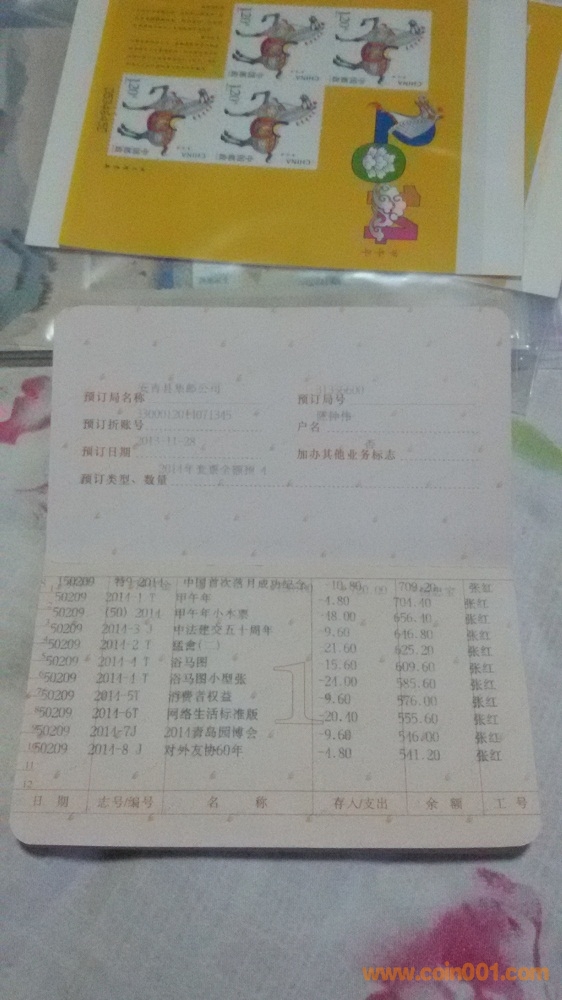 1.20元
1.20元
中国邮政
CHINA
中国邮政
CHINA
1.20元
1.20元
中国邮政
CHINA
中国邮政
CHINA
预订局名称
预订局号
预订折账号
户名
预订日期 2013-11-28
加办其他业务标志 否
预订类型、数量 2014年套票全额预 4
150209 特9-2014 中国首次落月成功纪念 -10.80 709.20 张红
50209 2014-1 T 甲午年 -4.80 704.40 张红
50209 (50) 2014 甲午年小本票 -48.00 656.40 张红
50209 2014-3 J 中法建交五十周年 -9.60 646.80 张红
50209 2014-2 T 猛禽(二) -21.60 625.20 张红
50209 2014-4 T 浴马图 -15.60 609.60 张红
50209 2014-4 T 浴马图小型张 -24.00 585.60 张红
50209 2014-5T 消费者权益 -9.60 576.00 张红
50209 2014-6T 网络生活标准版 -20.40 555.60 张红
50209 2014-7J 2014青岛园博会 -9.60 546.00 张红
50209 2014-8 J 对外友协60年 -4.80 541.20 张红
11
12
日 期 志号/编号 名 称 存入/支出 余 额 工 号
www.coin001.com